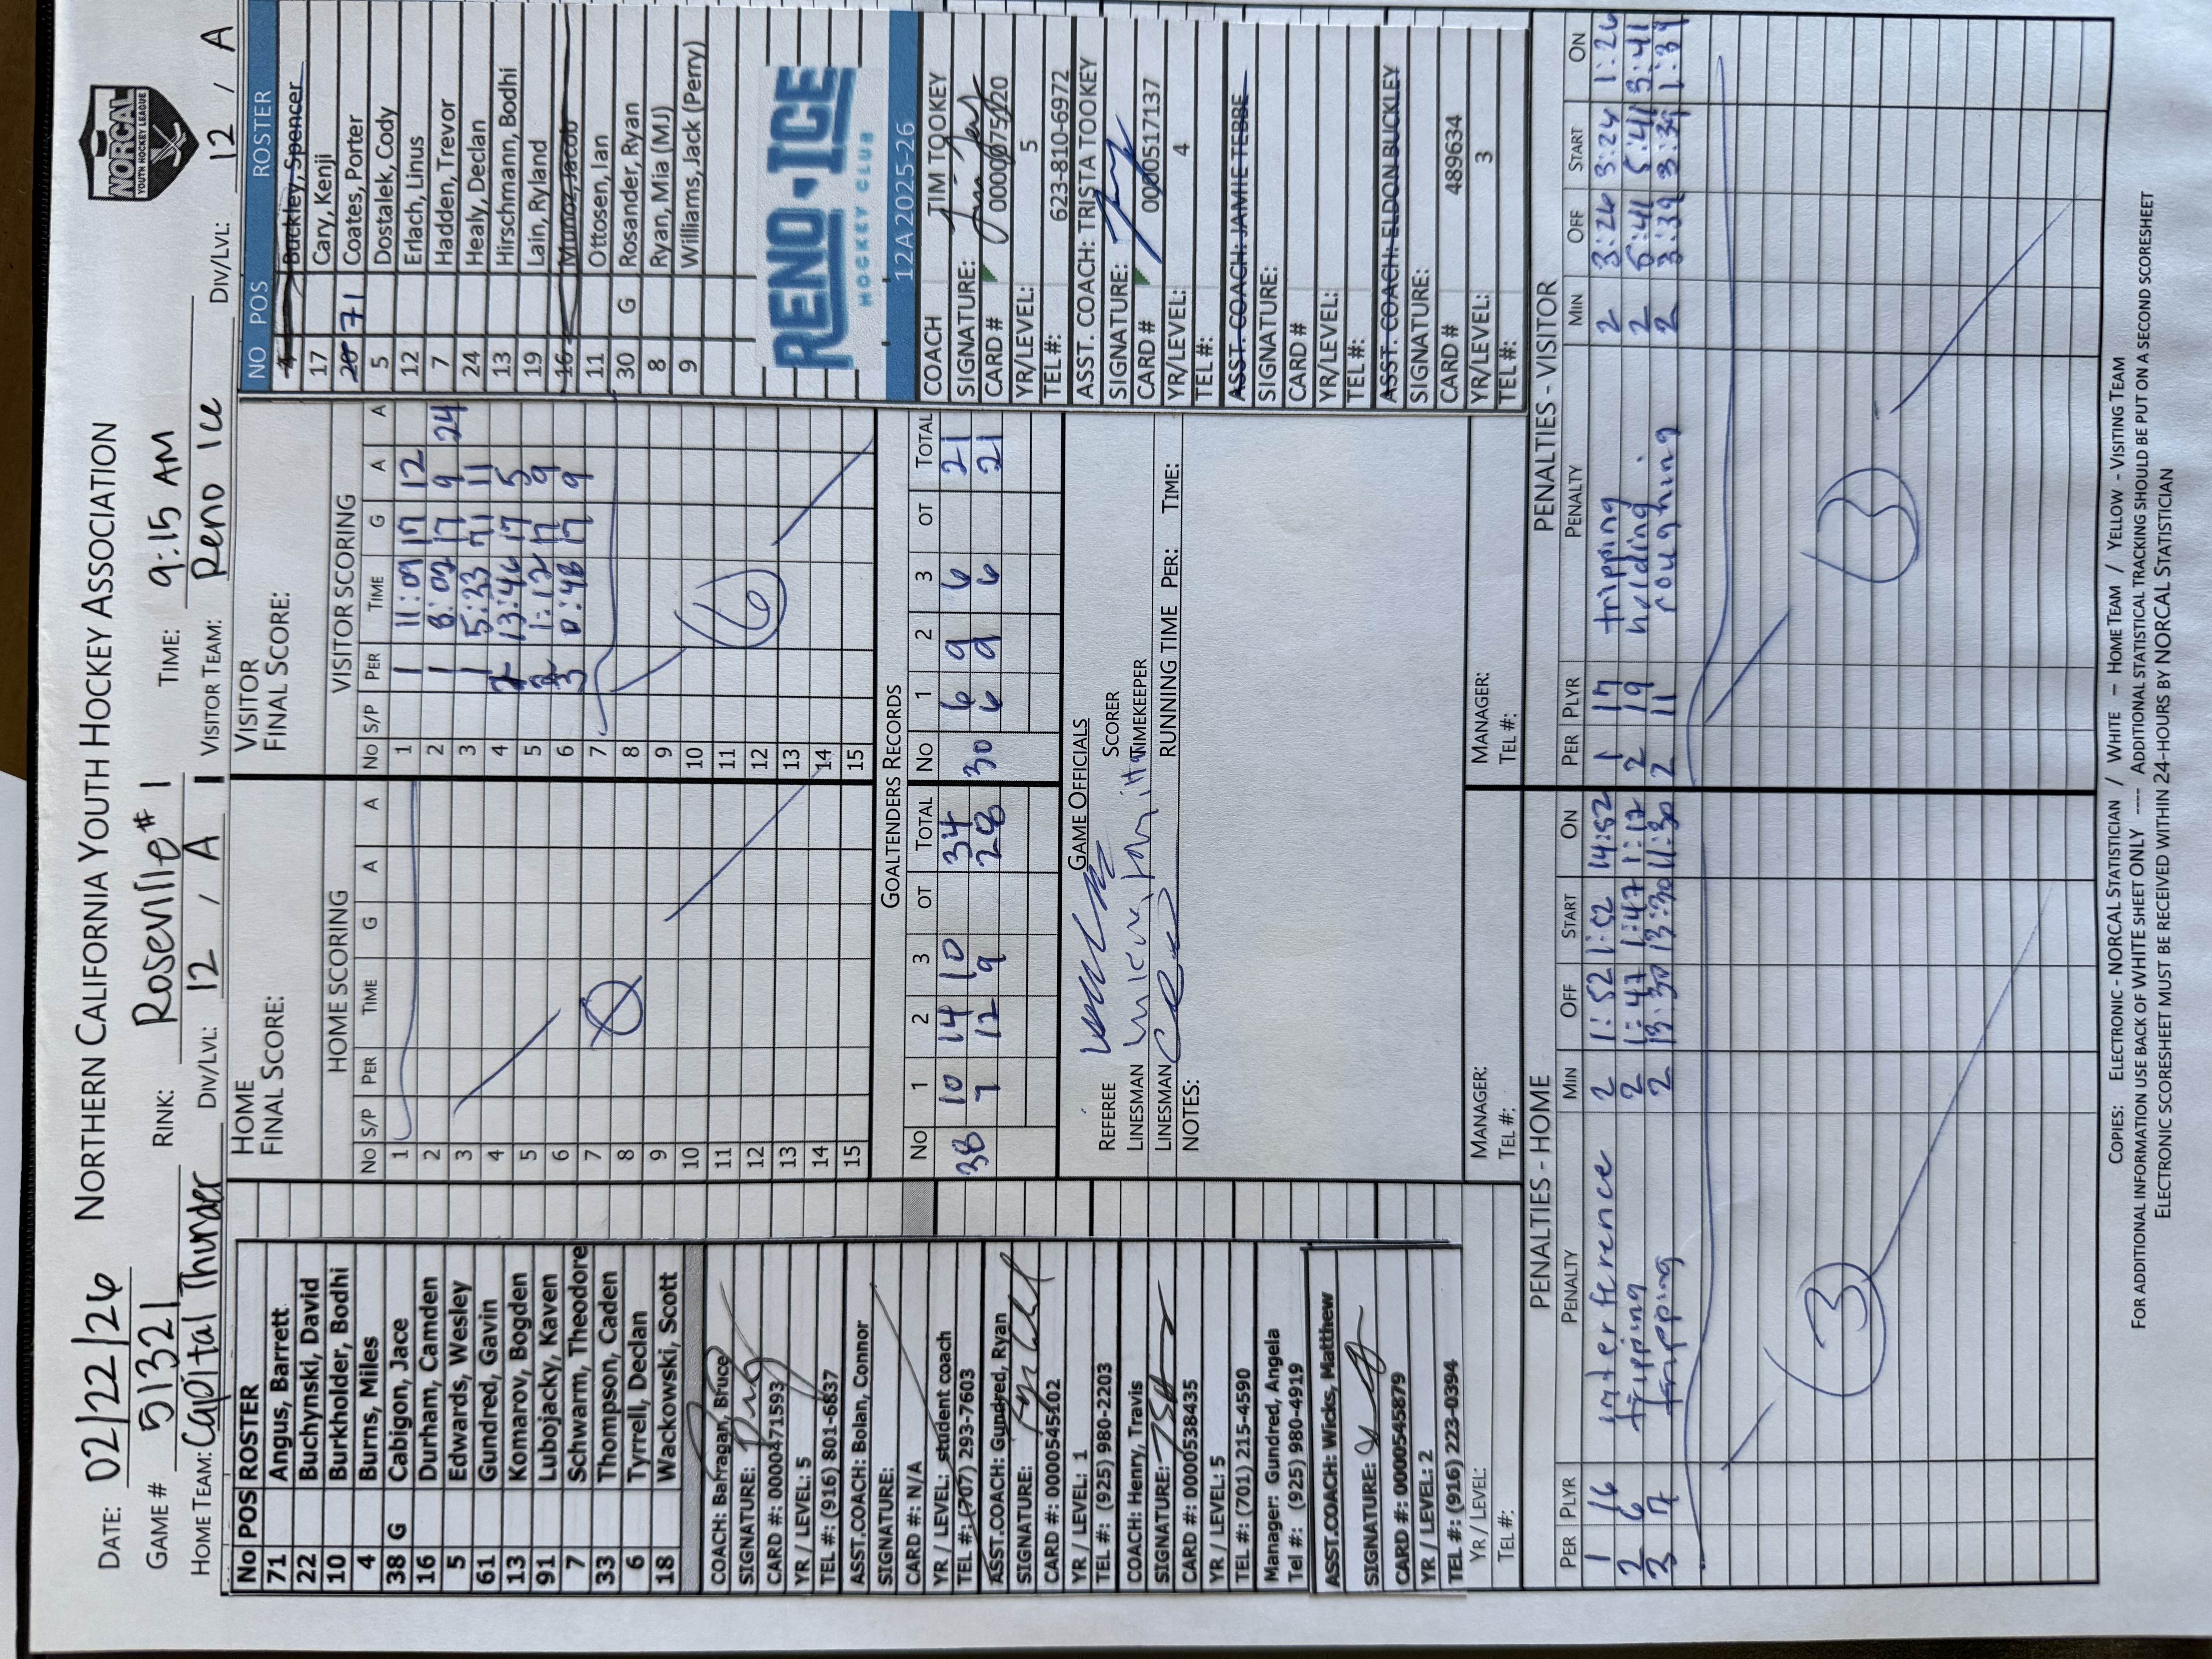 DATE: 02/22/26 NORTHERN CALIFORNIA YOUTH HOCKEY ASSOCIATION
GAME # 51321 RINK: Roseville #1 TIME: 9:15 AM
HOME TEAM: Capital Thunder DIV/LVL: 12 / A VISITOR TEAM: Reno Ice DIV/LVL: 12 / A
NORCAL
YOUTH HOCKEY LEAGUE
No POS ROSTER
71 Angus, Barrett
22 Buchynski, David
10 Burkholder, Bodhi
4 Burns, Miles
38 G Cabigon, Jace
16 Durham, Camden
5 Edwards, Wesley
61 Gundred, Gavin
13 Komarov, Bogden
91 Lubojacky, Kaven
7 Schwarm, Theodore
33 Thompson, Caden
6 Tyrrell, Declan
18 Wackowski, Scott
COACH: Barragan, Bruce
SIGNATURE:
CARD #: 0000471593
YR / LEVEL: 5
TEL #: (916) 801-6837
ASST.COACH: Bolan, Connor
SIGNATURE:
CARD #: N/A
YR / LEVEL: student coach
TEL #: (707) 293-7603
ASST.COACH: Gundred, Ryan
SIGNATURE:
CARD #: 0000545102
YR / LEVEL: 1
TEL #: (925) 980-2203
COACH: Henry, Travis
SIGNATURE:
CARD #: 0000538435
YR / LEVEL: 5
TEL #: (701) 215-4590
Manager: Gundred, Angela
Tel #: (925) 980-4919
ASST.COACH: Wicks, Matthew
SIGNATURE:
CARD #: 0000545879
YR / LEVEL: 2
TEL #: (916) 223-0394
YR / LEVEL:
TEL #:
HOME
FINAL SCORE:
HOME SCORING
No S/P PER TIME G A A
1
2
3
4
5
6
7
8
9
10
11
12
13
14
15
0
VISITOR
FINAL SCORE:
VISITOR SCORING
No S/P PER TIME G A A
1 1 11:09 17 12
2 1 8:02 17 9 24
3 1 5:33 71 11
4 2 13:46 17 5
5 3 1:12 17 9
6 3 0:48 17 9
7
8
9
10
11
12
13
14
15
6
GOALTENDERS RECORDS
No 1 2 3 OT TOTAL No 1 2 3 OT TOTAL
38 10 14 10 34 30 6 9 6 21
7 12 9 28 6 9 6 21
GAME OFFICIALS
REFEREE SCORER
LINESMAN TIMEKEEPER
LINESMAN RUNNING TIME PER: TIME:
NOTES:
MANAGER: MANAGER:
TEL #: TEL #:
NO POS ROSTER
4 Buckley, Spencer
17 Cary, Kenji
20 71 Coates, Porter
5 Dostalek, Cody
12 Erlach, Linus
7 Hadden, Trevor
24 Healy, Declan
13 Hirschmann, Bodhi
19 Lain, Ryland
16 Munoz, Jacob
11 Ottosen, Ian
30 G Rosander, Ryan
8 Ryan, Mia (MJ)
9 Williams, Jack (Perry)
RENO ICE
HOCKEY CLUB
12A2025-26
COACH TIM TOOKEY
SIGNATURE:
CARD #
YR/LEVEL: 5
TEL #: 623-810-6972
ASST. COACH: TRISTA TOOKEY
SIGNATURE:
CARD # 0000517137
YR/LEVEL: 4
TEL #:
ASST. COACH: JAMIE TEBBE
SIGNATURE:
CARD #
YR/LEVEL:
TEL #:
ASST. COACH: ELDON BUCKLEY
SIGNATURE:
CARD # 489634
YR/LEVEL: 3
TEL #:
PENALTIES - HOME
PER PLYR PENALTY MIN OFF START ON
1 16 interference 2 1:52 1:52 14:52
2 6 tripping 2 1:47 1:47 1:12
3 7 tripping 2 13:30 13:30 11:30
3
PENALTIES - VISITOR
PER PLYR PENALTY MIN OFF START ON
1 17 tripping 2 3:26 3:24 1:26
2 19 holding 2 5:41 5:41 3:41
2 11 roughing 2 3:39 3:39 1:39
3
COPIES: ELECTRONIC - NORCAL STATISTICIAN / WHITE – HOME TEAM / YELLOW - VISITING TEAM
FOR ADDITIONAL INFORMATION USE BACK OF WHITE SHEET ONLY ---- ADDITIONAL STATISTICAL TRACKING SHOULD BE PUT ON A SECOND SCORESHEET
ELECTRONIC SCORESHEET MUST BE RECEIVED WITHIN 24-HOURS BY NORCAL STATISTICIAN